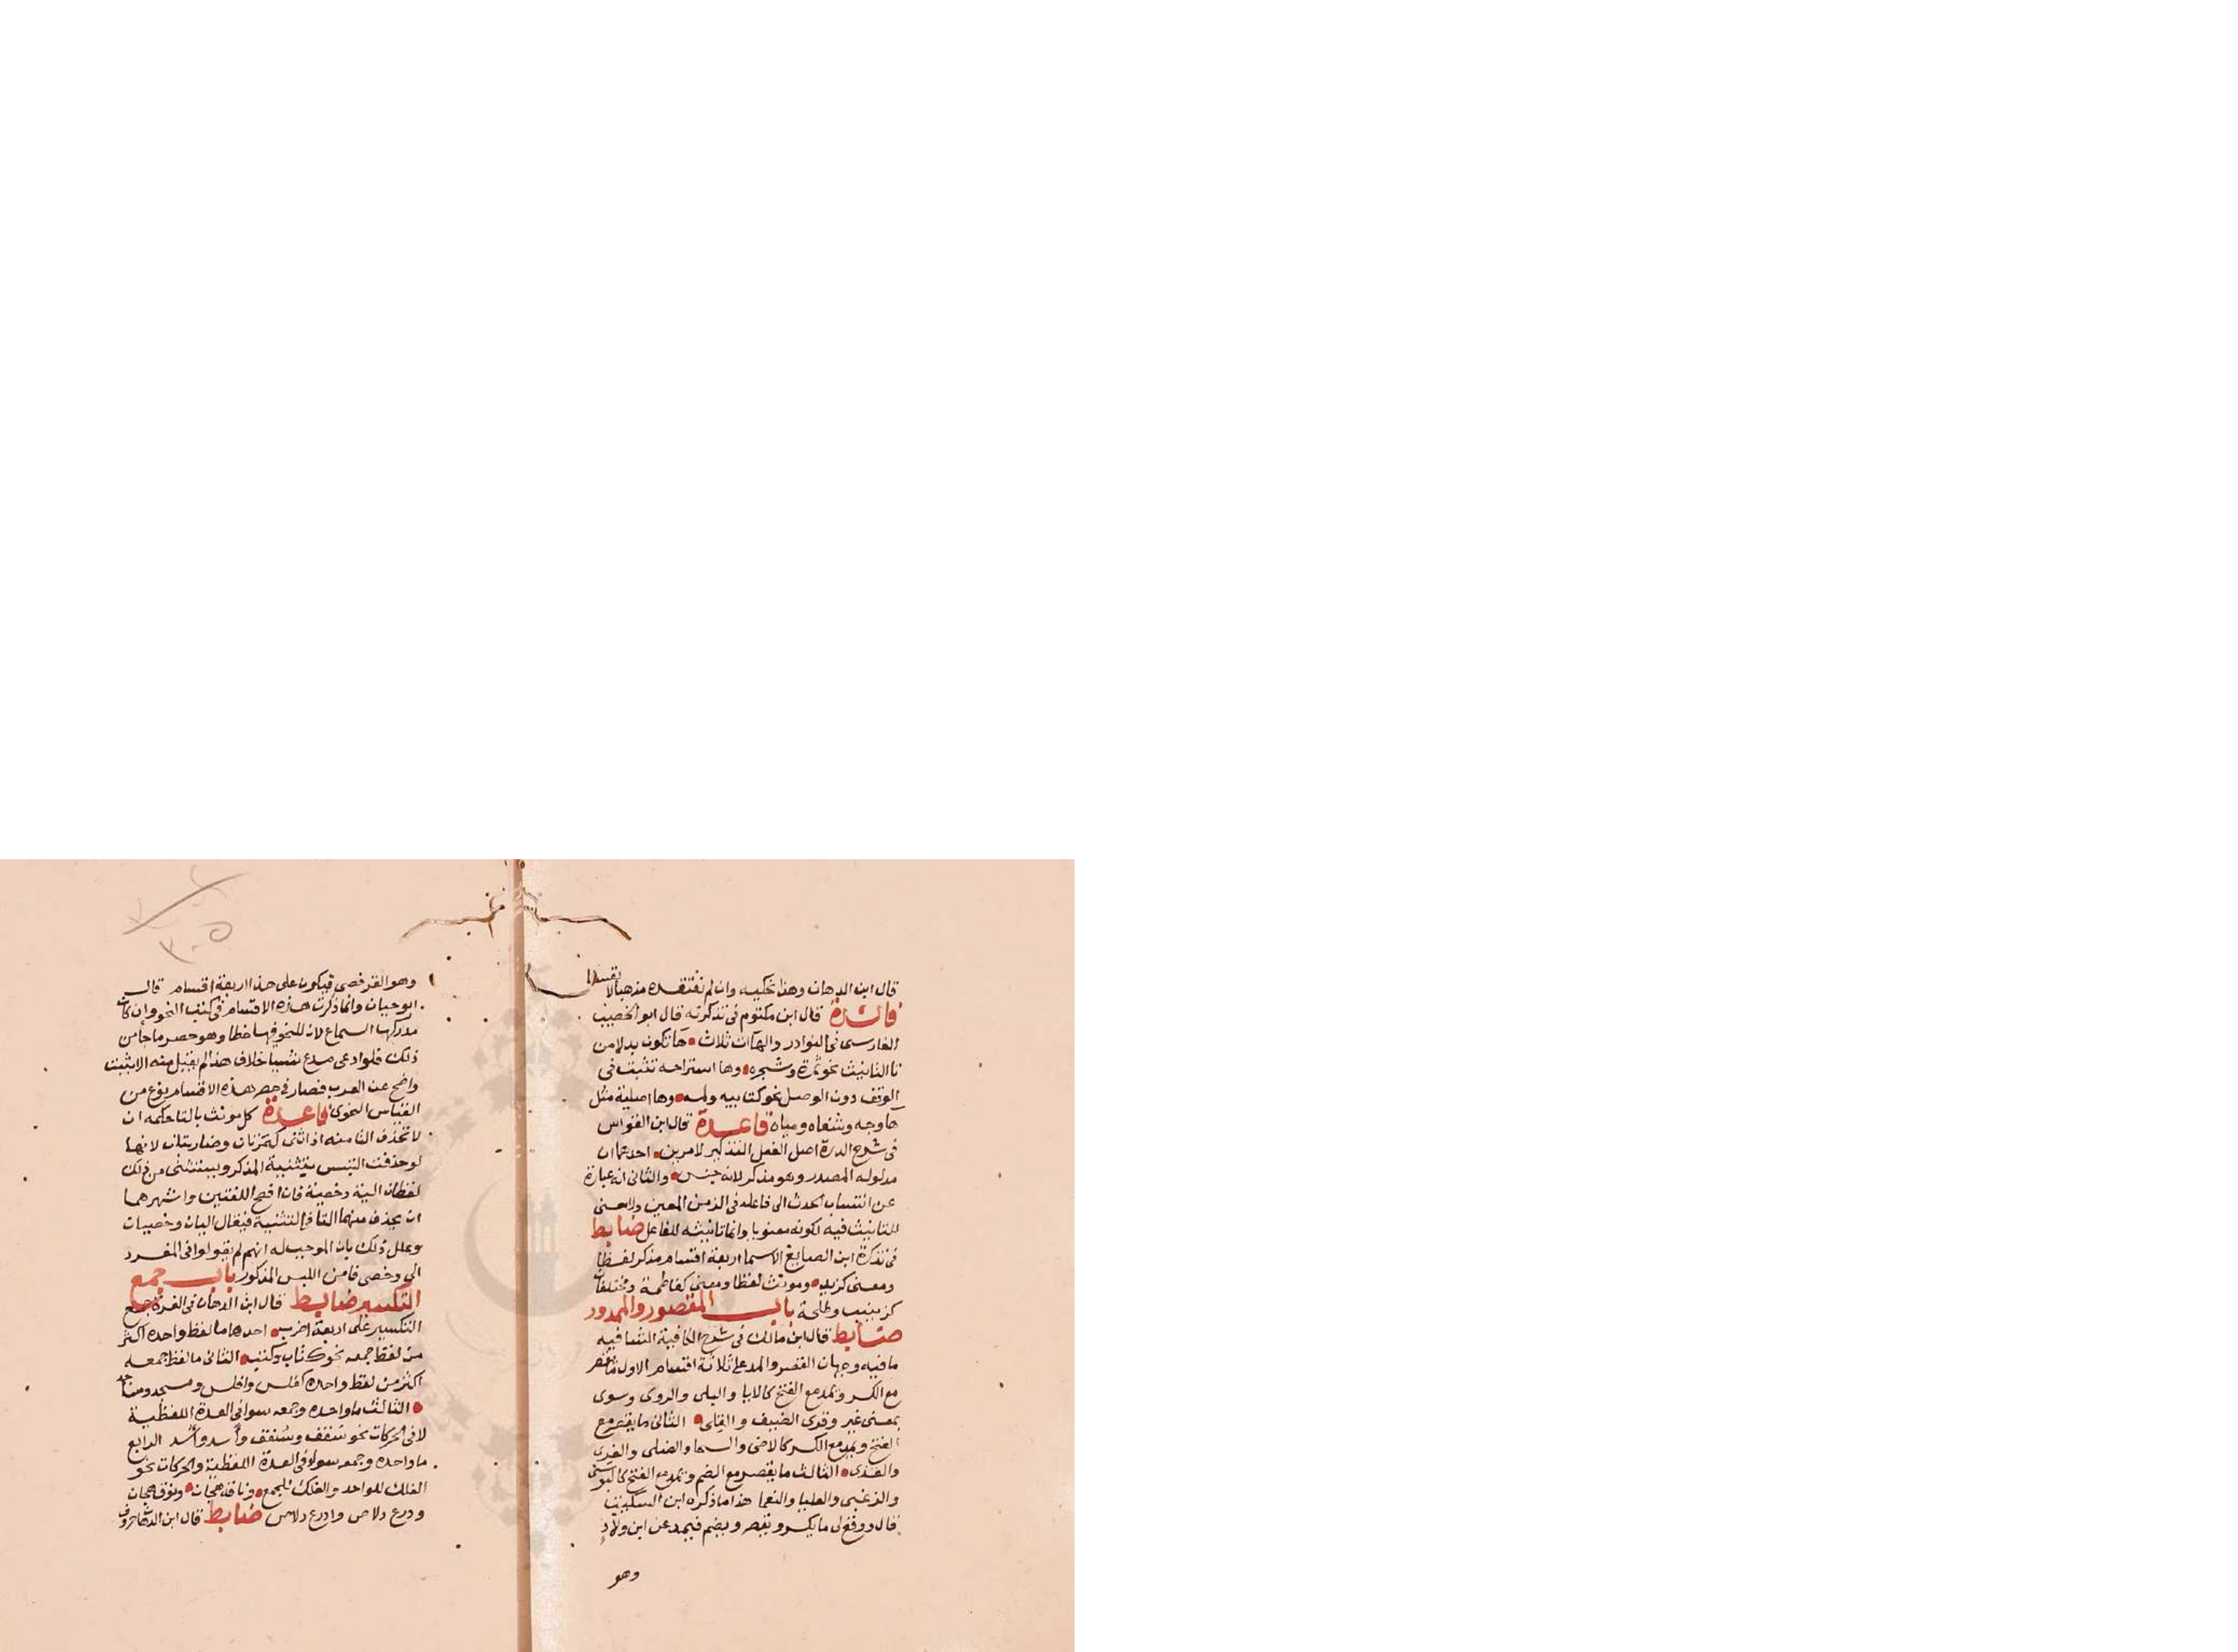 قال ابن الدهان وهذا نحكيه وان لم نعتقده مذهبا لا
فائدة قال ابن مكتوم فى تذكرته قال ابو الخصيب
الفارسى فى النوادر والهاآت ثلاث هآ تكون بدلا من
تا التانيث نحو ثمرة وشجره وها استراحه تثبت فى
الوقف دون الوصل نحو كتابيه ولمه وها اصلية مثل
هآ وجه وشفاه ومياه قاعدة قال ابن القواس
فى شرح الدرة اصل الفعل التذكير لامرين احدهما ان
مدلوله المصدر وهو مذكر لانه جنس والثانى انه عبارة
عن انتساب الحدث الى فاعله فى الزمن المعين ولا معنى
للتانيث فيه لكونه معنويا وانما تانيثه للفاعل ضابط
فى تذكرة ابن الصايغ الاسما اربعة اقسام مذكر لفظا
ومعنى كزيد ومونث لفظا ومعنى كفاطمة ومختلفان
كزينب وطلحة باب المقصور والممدود
ضابط قال ابن مالك فى شرح الكافية الشافيه
ما فيه وجهان القصر والمد على ثلاثة اقسام الاول ما يقصر
مع الكسر ويمد مع الفتح كالايا والبلى والروى وسوى
بمعنى غير وقرى الضيف والقلى الثانى ما يقصر مع
الفتح ويمد مع الكسر كالاضى والسحا والصلى والغرى
والفدى الثالث ما يقصر مع الضم ويمد مع الفتح كالبوسى
والرغبى والعليا والنعما هذا ما ذكره ابن السكيت
قال ووقع لى ما يكسر ويقصر ويضم فيمد عن ابن ولاد
وهو
وهو القرفصى فيكون على هذا اربعة اقسام قال
ابو حيان وانما ذكرت هذه الاقسام فى كتب النحو وان كان
مدركها السماع لان للنحو فيها خطا وهو حصر ما جا من
ذلك فلو ادعى مدع شيا خلاف هذا لم يقبل منه الا بثبت
واضح عن العرب فصار فى حصر هذه الاقسام نوع من
القياس النحوى قاعدة كل مونث بالتا حكمه ان
لا تحذف التا منه اذا ثنى كتمرتان وضاربتان لانها
لو حذفت التبس بتثنية المذكر ويستثنى من ذلك
لفظان الية وخصية فان افصح اللغتين واشهرهما
ان يحذف منهما التا فى التثنية فيقال اليان وخصيان
وعلل ذلك بان الموجب له انهم لم يقولوا فى المفرد
الى وخصى فامن اللبس المذكور باب جمع
التكسير ضابط قال ابن الدهان فى الغرة جمع
التكسير على اربعة اضرب احدها ما لفظ واحده اكثر
من لفظ جمعه نحو كتاب وكتب الثانى ما لفظ جمعه
اكثر من لفظ واحده كفلس وافلس ومسجد ومساجد
الثالث ما واحده وجمعه سوا فى العدة اللفظية
لا فى الحركات نحو سقف وسقف وأسد وأسد الرابع
ما واحده وجمعه سواء فى العدة اللفظية والحركات نحو
الفلك للواحد والفلك للجمع وناقة هجان ونوق هجان
ودرع دلاص وادرع دلاص ضابط قال ابن الدهان حروف